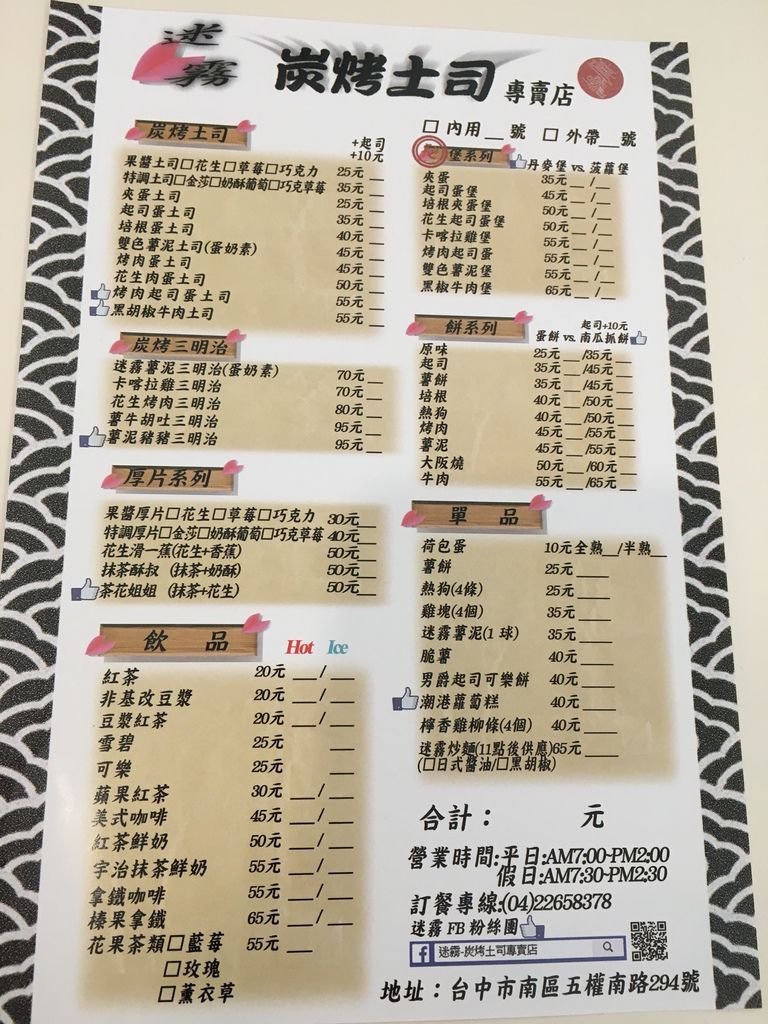 迷霧 炭烤土司 專賣店
□ 內用__號 □ 外帶__號
炭烤土司
+起司
+10元
果醬土司□花生□草莓□巧克力 25元
特調土司□金莎□奶酥葡萄□巧克草莓 35元
夾蛋土司 25元
起司蛋土司 35元
培根蛋土司 40元
雙色薯泥土司(蛋奶素) 45元
烤肉蛋土司 45元
花生肉蛋土司 50元
烤肉起司蛋土司 55元
黑胡椒牛肉土司 55元
炭烤三明治
迷霧薯泥三明治(蛋奶素) 70元
卡喀拉雞三明治 70元
花生烤肉三明治 80元
薯牛胡吐三明治 95元
薯泥豬豬三明治 95元
厚片系列
果醬厚片□花生□草莓□巧克力 30元
特調厚片□金莎□奶酥葡萄□巧克草莓 40元
花生滑一蕉(花生+香蕉) 50元
抹茶酥叔 (抹茶+奶酥) 50元
茶花姐姐 (抹茶+花生) 50元
飲 品 Hot Ice
紅茶 20元 __/__
非基改豆漿 20元 __/__
豆漿紅茶 20元 __/__
雪碧 25元 __
可樂 25元 __
蘋果紅茶 30元 __/__
美式咖啡 45元 __/__
紅茶鮮奶 50元 __/__
宇治抹茶鮮奶 55元 __/__
拿鐵咖啡 55元 __/__
榛果拿鐵 65元 __/__
花果茶類□藍莓 55元 __
□玫瑰
□薰衣草
堡系列 丹麥堡 vs. 菠蘿堡
夾蛋 35元 __/__
起司蛋堡 45元 __/__
培根夾蛋堡 50元 __/__
花生起司蛋堡 50元 __/__
卡喀拉雞堡 55元 __/__
烤肉起司蛋 55元 __/__
雙色薯泥堡 55元 __/__
黑椒牛肉堡 65元 __/__
餅系列
起司+10元
蛋餅 vs. 南瓜抓餅
原味 25元 __/35元 __
起司 35元 __/45元 __
薯餅 35元 __/45元 __
培根 40元 __/50元 __
熱狗 40元 __/50元 __
烤肉 45元 __/55元 __
薯泥 45元 __/55元 __
大阪燒 50元 __/60元 __
牛肉 55元 __/65元 __
單 品
荷包蛋 10元 全熟__/半熟__
薯餅 25元
熱狗(4條) 25元
雞塊(4個) 35元
迷霧薯泥(1 球) 35元
脆薯 40元
男爵起司可樂餅 40元
潮港蘿蔔糕 40元
檸香雞柳條(4個) 40元
迷霧炒麵(11點後供應)65元
(□日式醬油/□黑胡椒)
合計： 元
營業時間:平日:AM7:00-PM2:00
假日:AM7:30-PM2:30
訂餐專線:(04)22658378
迷霧 FB 粉絲團
f 迷霧-炭烤土司專賣店
地址：台中市南區五權南路294號